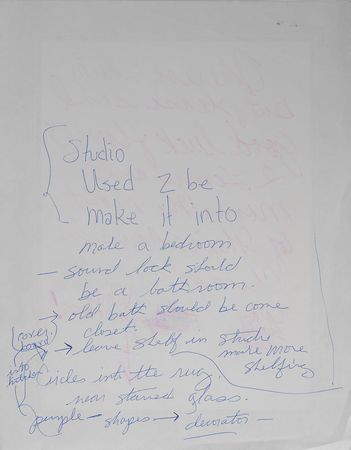 Studio
Used 2 be
make it into
make a bedroom
— sound lock should
be a bathroom.
→ old bath should be come
closet.
→ leave shelf in studio
make more
shelfing
(cover
into
circles into the rug,
near stained glass.
purple — shapes → decorator —